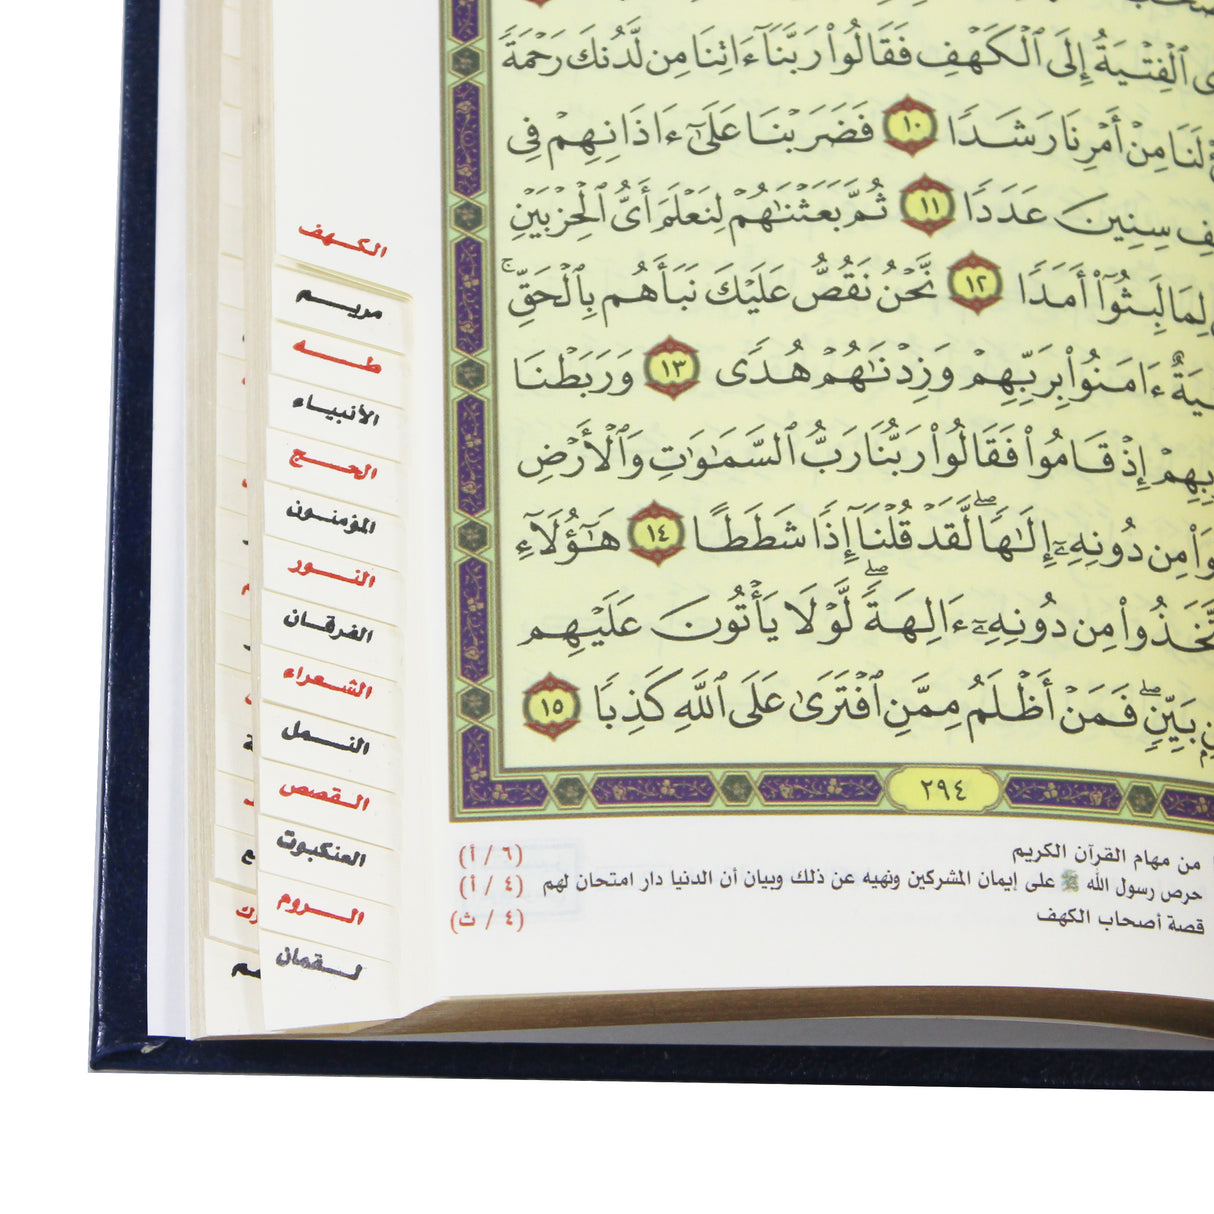 ى ٱلۡفِتۡيَةُ إِلَى ٱلۡكَهۡفِ فَقَالُوا۟ رَبَّنَآ ءَاتِنَا مِن لَّدُنكَ رَحۡمَةً
لَنَا مِنۡ أَمۡرِنَا رَشَدًا ١٠ فَضَرَبۡنَا عَلَىٰٓ ءَاذَانِهِمۡ فِى
ٱلۡكَهۡفِ سِنِينَ عَدَدًا ١١ ثُمَّ بَعَثۡنَٰهُمۡ لِنَعۡلَمَ أَىُّ ٱلۡحِزۡبَيۡنِ
لِمَا لَبِثُوٓا۟ أَمَدًا ١٢ نَّحۡنُ نَقُصُّ عَلَيۡكَ نَبَأَهُم بِٱلۡحَقِّۚ
يَةٌ ءَامَنُوا۟ بِرَبِّهِمۡ وَزِدۡنَٰهُمۡ هُدًى ١٣ وَرَبَطۡنَا
بِهِمۡ إِذۡ قَامُوا۟ فَقَالُوا۟ رَبُّنَا رَبُّ ٱلسَّمَٰوَٰتِ وَٱلۡأَرۡضِ
وَا۟ مِن دُونِهِۦٓ إِلَٰهًاۖ لَّقَدۡ قُلۡنَآ إِذًا شَطَطًا ١٤ هَٰٓؤُلَآءِ
تَّخَذُوا۟ مِن دُونِهِۦٓ ءَالِهَةًۖ لَّوۡلَا يَأۡتُونَ عَلَيۡهِم
بَيِّنٍۖ فَمَنۡ أَظۡلَمُ مِمَّنِ ٱفۡتَرَىٰ عَلَى ٱللَّهِ كَذِبًا ١٥
٢٩٤
من مهام القرآن الكريم (٦ / أ)
حرص رسول الله ﷺ على إيمان المشركين ونهيه عن ذلك وبيان أن الدنيا دار امتحان لهم (٤ / أ)
قصة أصحاب الكهف (٤ / ث)
الكهف
مريم
طه
الأنبياء
الحج
المؤمنون
النور
الفرقان
الشعراء
النمل
القصص
العنكبوت
الروم
لقمان